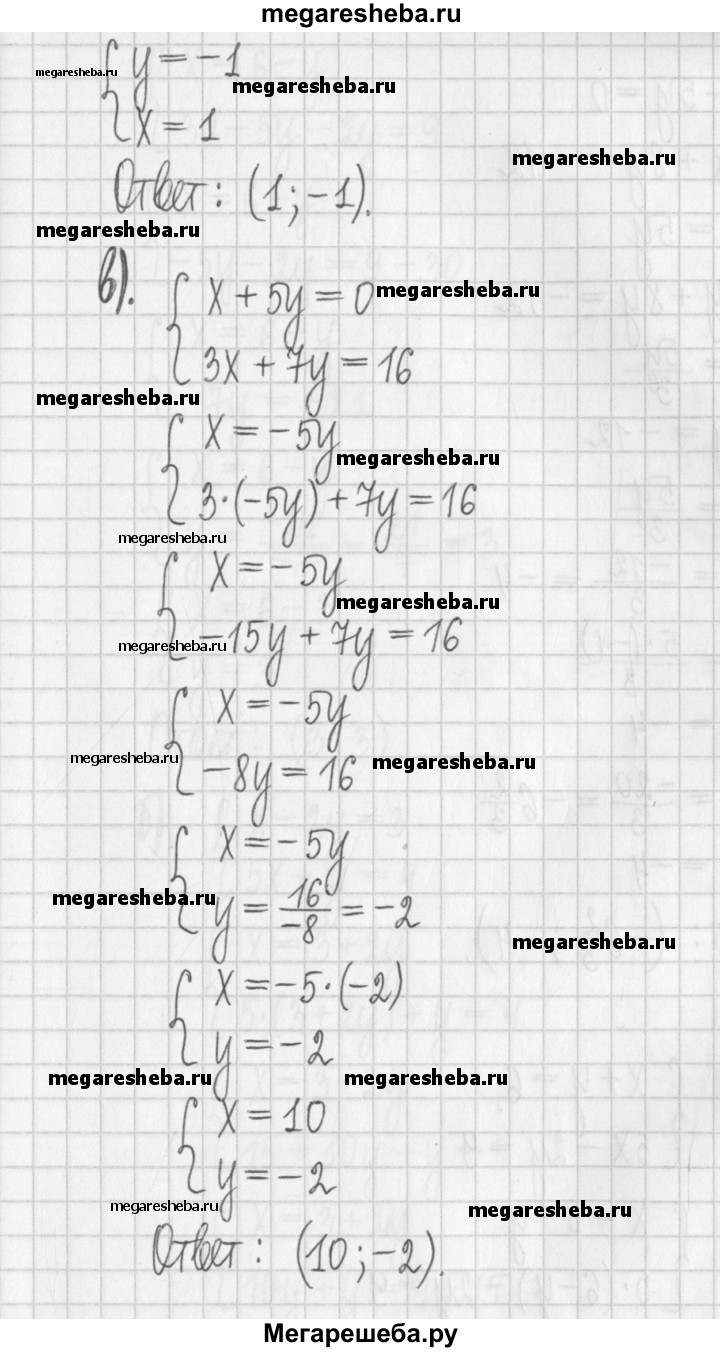 megaresheba.ru
y = -1
megaresheba.ru
megaresheba.ru
x = 1
megaresheba.ru
Ответ: (1; -1).
megaresheba.ru
в).
x + 5y = 0
megaresheba.ru
3x + 7y = 16
megaresheba.ru
x = -5y
megaresheba.ru
3·(-5y) + 7y = 16
megaresheba.ru
x = -5y
megaresheba.ru
-15y + 7y = 16
megaresheba.ru
x = -5y
megaresheba.ru
-8y = 16
megaresheba.ru
x = -5y
megaresheba.ru
y = 16/-8 = -2
megaresheba.ru
x = -5·(-2)
y = -2
megaresheba.ru
megaresheba.ru
x = 10
y = -2
megaresheba.ru
megaresheba.ru
Ответ: (10; -2).
Мегарешеба.ру